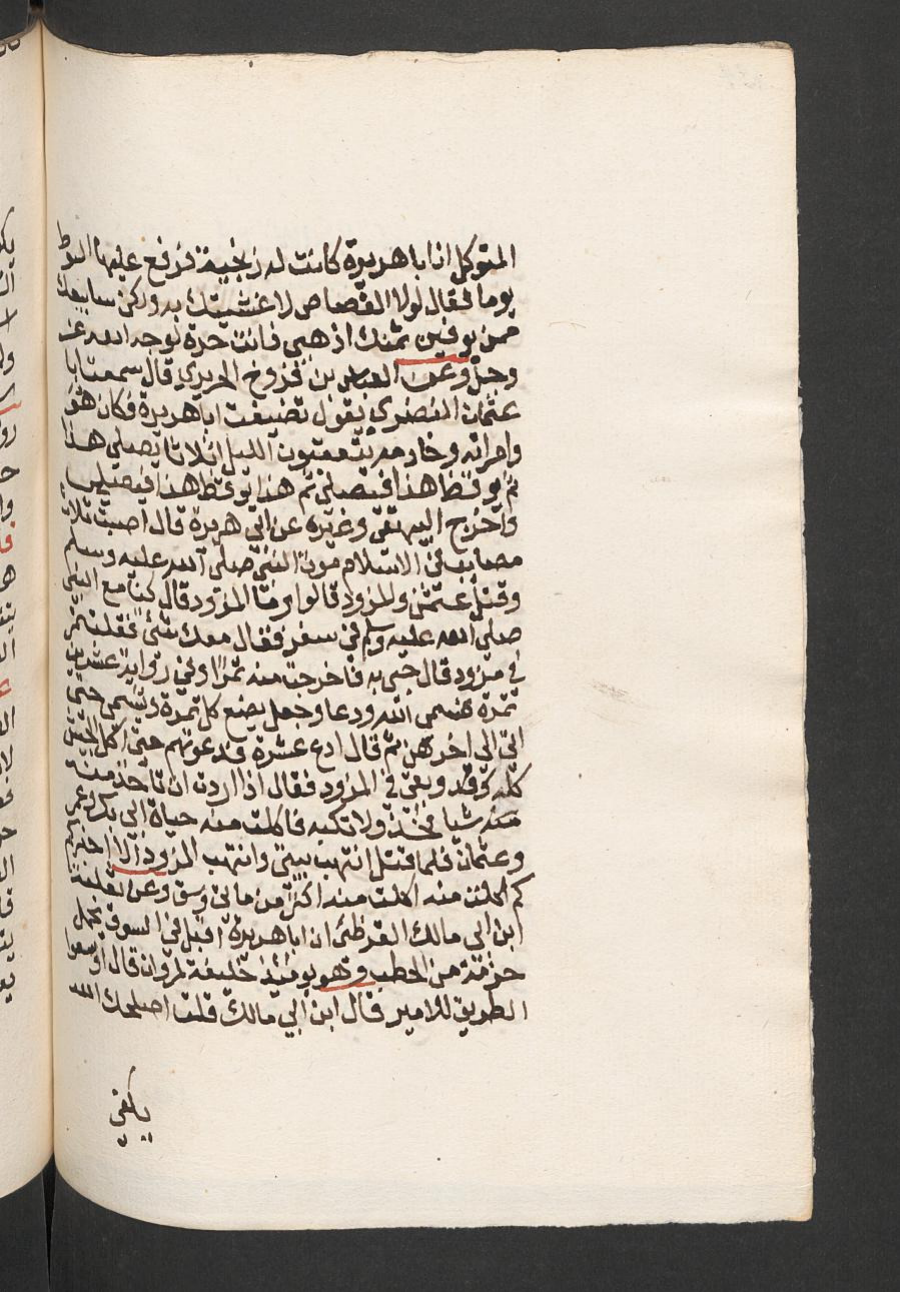 المتوكل ان ابا هريرة كانت له زنجية فرفع عليها السوط
يوما فقال لولا القصاص لاغشيتك به ولكن سابيعك
ممن يوفيني ثمنك اذهبي فانت حرة لوجه الله عز
وجل وعن العباس بن فروخ الجريري قال سمعت ابا
عثمان النضري يقول تضيفت ابا هريرة فكان هو
وامراته وخادمه يتعقبون الليل اثلاثا يصلي هذا
ثم يوقظ هذا فيصلي ثم هذا يوقظ هذا فيصلي
واخرج البيهقي وغيره عن ابي هريرة قال اصبت بثلاث
مصايب في الاسلام موت النبي صلى الله عليه وسلم
وقتل عثمن والمزود قالوا وما المزود قال كنا مع النبي
صلى الله عليه وسلم في سفر فقال معك شئ فقلت تمر
في مزود قال جئ به فاخرجت منه تمرا وفي رواية عشرين
تمرة فسمى الله ودعا وجعل يضع كل تمرة ويسمي حتى
اتى الى اخرهن ثم قال ادع عشرة فدعوتهم حتى اكل الجيش
كله وفد وبقي في المزود فقال اذا اردت ان تاخذ منه
منه شيا فخذ ولا تكبه فاكلت منه حياة ابي بكر وعمر
وعثمان فلما قتل انتهب بيتي وانتهب المزود الا اخبركم
كم اكلت منه اكلت منه اكثر من ماتي وسق وعن ثعلبة
ابن ابي مالك القرظي ان ابا هريرة اقبل في السوق يحمل
حزمة من الحطب وهو يومئذ خليفة لمروان قال اوسعوا
الطريق للامير قال ابن ابي مالك قلت اصلحك الله
يكفي